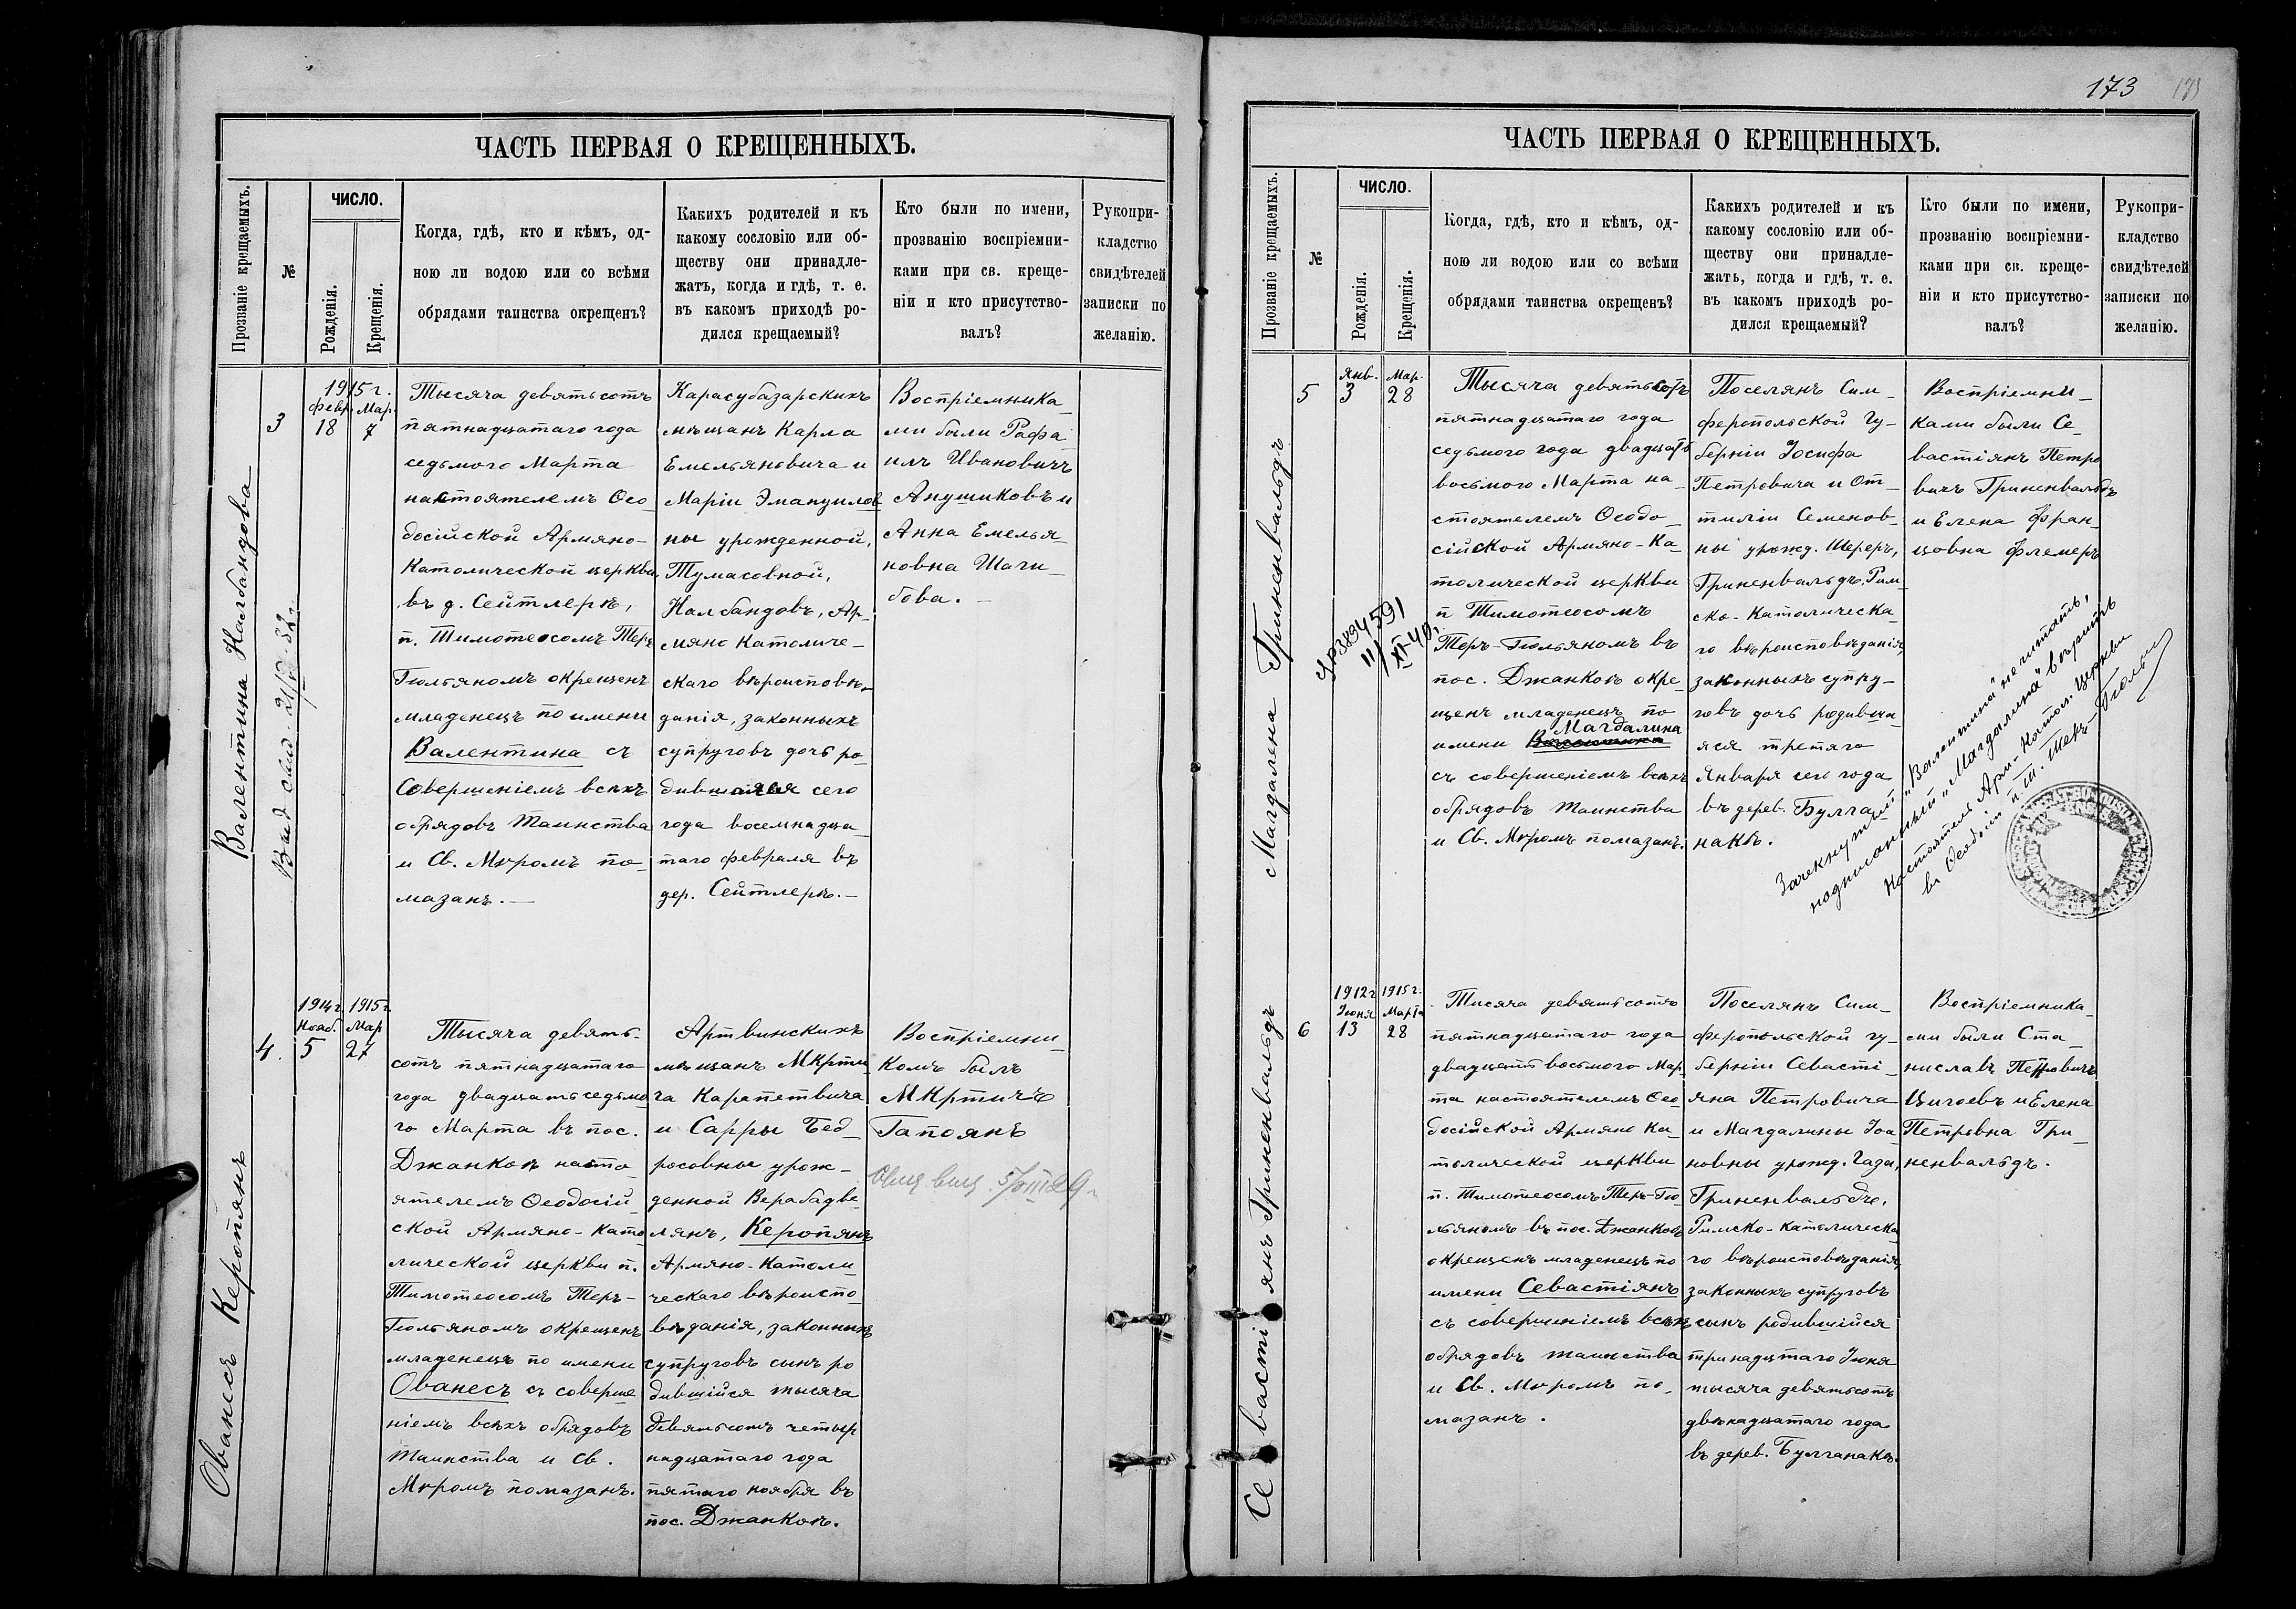 ЧАСТЬ ПЕРВАЯ О КРЕЩЕННЫХЪ.
Прозваніе крещаемыхъ.
№
ЧИСЛО.
Рожденія.
Крещенія.
Когда, гдѣ, кто и кѣмъ, од-
ною ли водою или со всѣми
обрядами таинства окрещенъ?
Какихъ родителей и къ
какому сословію или об-
ществу они принадле-
жатъ, когда и гдѣ, т. е.
въ какомъ приходѣ ро-
дился крещаемый?
Кто были по имени,
прозванію воспріемни-
ками при св. креще-
ніи и кто присутство-
валъ?
Рукопри-
кладство
свидѣтелей
записки по
желанію.
Валентина Налбандова
3
1915 г.
Февр. Мар.
18 7
Тысяча девятьсотъ
пятнадцатаго года
седьмого Марта
настоятелемъ Ѳео-
досійской Армяно-
Католической церкви,
въ д. Сейтлерѣ,
п. Тимотеосомъ Теръ
Гюльяномъ окрещенъ
младенецъ по имени
Валентина съ
Совершеніемъ всѣхъ
обрядовъ Таинства
и Св. Мѵромъ по-
мазанъ. —
Карасубазарскихъ
мѣщанъ Карла
Емельяновича и
Маріи Эмануилов
ны урожденной,
Тумасовной,
Налбандовъ, Ар-
мяно Католиче-
скаго вѣроисповѣ-
данія, законныхъ
супруговъ дочь ро-
дившаяся сего
года восемнадца-
таго февраля въ
дер. Сейтлерѣ. —
Воспріемника-
ми были Рафа
илъ Ивановичъ
Анушиковъ и
Анна Емелья-
новна Шаги-
бова. —
Ованесъ Керопянъ
4.
1914 г. 1915 г.
Нояб. Мар
5 27
Тысяча девять-
сотъ пятнадцатаго
года двадцать седьмо
го Марта въ пос.
Джанкоѣ насто
ятелемъ Ѳеодосій-
ской Армяно-Като
лической церкви п.
Тимотеосомъ Теръ-
Гюльяномъ окрещенъ
младенецъ по имени
Ованесъ съ соверше
ніемъ всѣхъ обрядовъ
Таинства и Св.
Мѵромъ помазанъ.
Артвинскихъ
мѣщанъ Мкрти
ча Карапетвича
и Сарры Бед-
росовны урож-
денной Верабадве
лянъ, Керопянъ
Армяно-Католи-
ческаго вѣроиспо-
вѣданія, законныхъ
супруговъ сынъ ро
дившійся тысяча
девятьсотъ четыр
надцатаго года
пятаго ноября въ
пос. Джанкоѣ.
Воспріемни-
комъ былъ
Мкртичъ
Гапоянъ
173
ЧАСТЬ ПЕРВАЯ О КРЕЩЕННЫХЪ.
Прозваніе крещаемыхъ.
№
ЧИСЛО.
Рожденія.
Крещенія.
Когда, гдѣ, кто и кѣмъ, од-
ною ли водою или со всѣми
обрядами таинства окрещенъ?
Какихъ родителей и къ
какому сословію или об-
ществу они принадле-
жатъ, когда и гдѣ, т. е.
въ какомъ приходѣ ро-
дился крещаемый?
Кто были по имени,
прозванію воспріемни-
ками при св. креще-
ніи и кто присутство-
валъ?
Рукопри-
кладство
свидѣтелей
записки по
желанію.
Магдалена Гриненвальдъ
5
Янв. Мар.
3 28
Тысяча девятьсотъ
пятнадцатаго года
седьмого года двадцать
восьмого Марта на-
стоятелемъ Ѳеодо-
сійской Армяно-Ка-
толической церкви
п Тимотеосомъ
Теръ-Гюльяномъ въ
пос. Джанкоѣ окре-
щенъ младенецъ по
Магдалина
имени
съ совершеніемъ всѣхъ
обрядовъ Таинства
и Св. Мѵромъ помазанъ.
Поселянъ Сим-
феропольской Гу-
берніи Іосифа
Петровича и От-
тиліи Семенов-
ны урожд. Шереръ,
Гриненвальдъ, Рим-
ско-Католическа-
го вѣроисповѣданія,
законныхъ супру-
говъ дочь родивша-
яся третяго
Января сего года
въ дерев. Булга-
накѣ.
Воспріемни-
ками были Се-
вастіянъ Петро
вичъ Гриненвальдъ
и Елена Фран-
цовна Флемеръ
Зачекнутый „Валентина" не читать,
надписанный „Магдалина" вѣрить
Настоятель Арм-Катол. Церкви
въ Ѳеодосіи п. Т. Теръ-Гюльян
Севастіянъ Гриненвальдъ
6
1912 г 1915 г.
Іюня Марта
13 28
Тисяча девятьсотъ
пятнадцатаго года
двадцать восьмого Мар-
та настоятелемъ Ѳео
досійской Армяно Ка-
толической церкви
п. Тимотеосомъ Теръ-Гю
льяномъ въ пос. Джанкоѣ
окрещенъ младенецъ по
имени Севастіянъ
съ совершеніемъ всѣхъ
обрядовъ таинства
и Св. Мѵромъ по-
мазанъ.
Поселянъ Сим-
феропольской гу-
берніи Севасті-
яна Петровича
и Магдалины Іоа
новны урожд. Газа,
Гриненвальдъ,
Римско-Католическа
го вѣроисповѣданія,
законныхъ супруговъ
сынъ родившійся
тринадцтаго Іюня
тысяча девятьсотъ
двѣнадцатаго года
въ дерев. Булганакѣ.
Воспріемника-
ми были Ста-
ниславъ Петровичъ
Цигоевъ и Елена
Петровна Гри-
ненвальдъ.